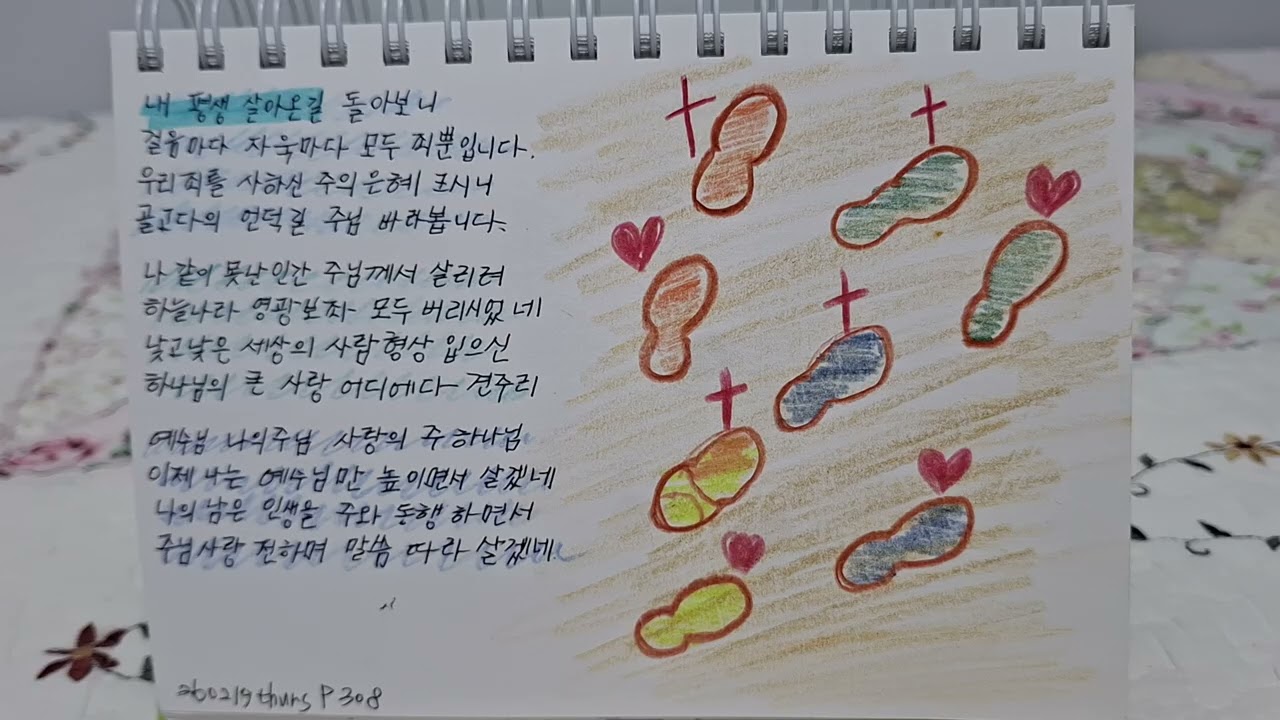 내 평생 살아온길 돌아보니
걸음마다 자욱마다 모두 죄뿐입니다.
우리죄를 사하신 주의은혜 크시니
골고다의 언덕길 주님 바라봅니다.
나 같이 못난인간 주님께서 살리려
하늘나라 영광보좌 모두 버리시었네
낮고낮은 세상의 사람형상 입으신
하나님의 큰 사랑 어디에다 견주리
예수님 나의주님 사랑의 주하나님
이제 나는 예수님만 높이면서 살겠네
나의 남은 인생을 주와 동행하면서
주님사랑 전하며 말씀 따라 살겠네
260219 thurs P 308